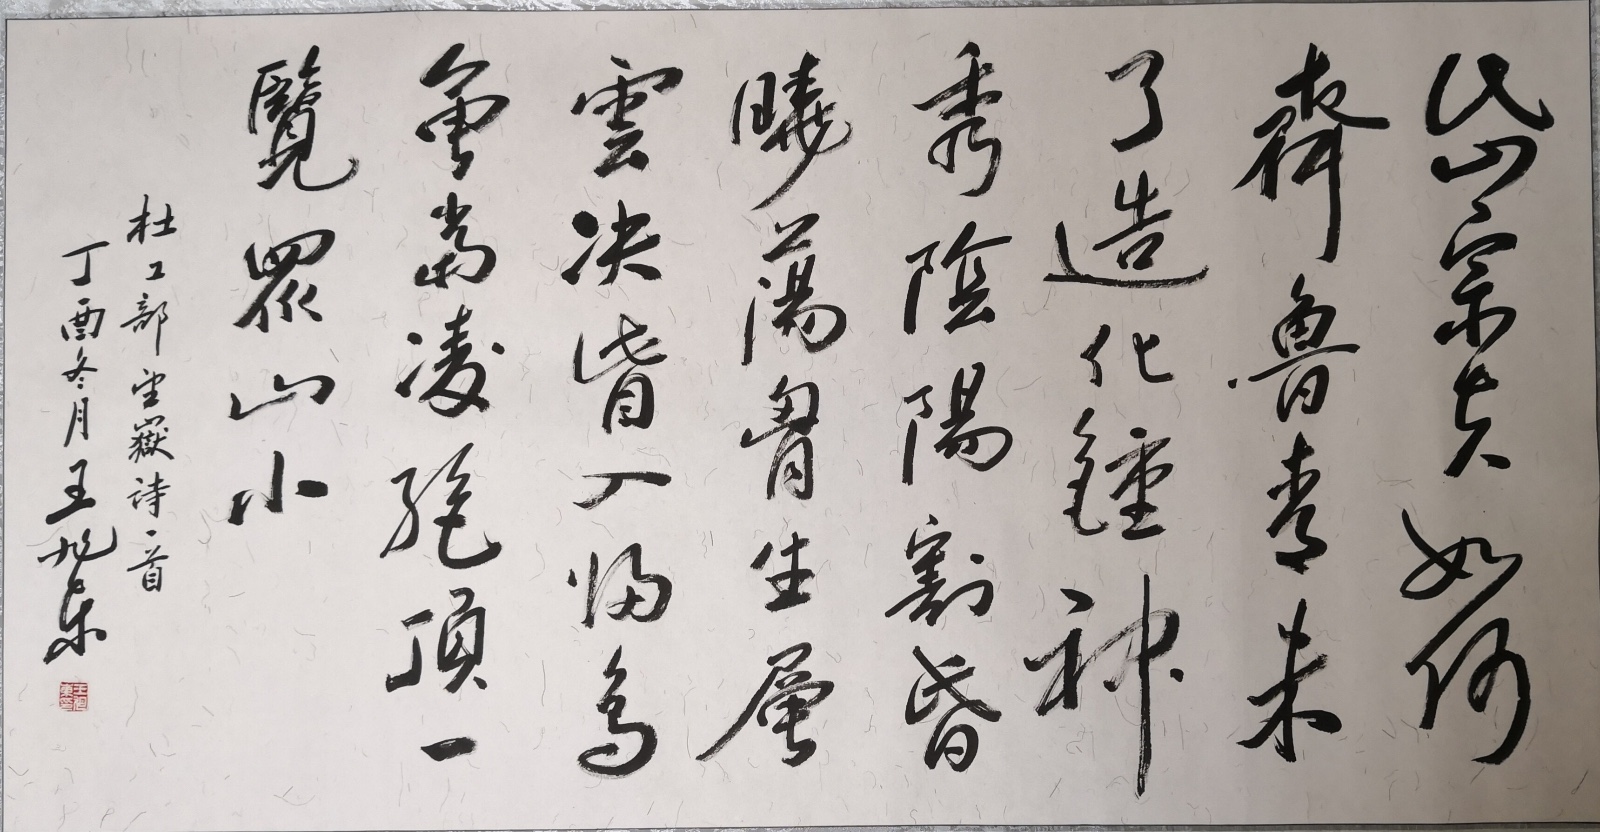 岱宗夫如何
齊魯青未
了造化鍾神
秀陰陽割昏
曉蕩胷生層
雲决眥入歸鳥
會當凌絕頂一
覽眾山小
杜工部望嶽詩一首
丁酉冬月王旭東
王旭東印